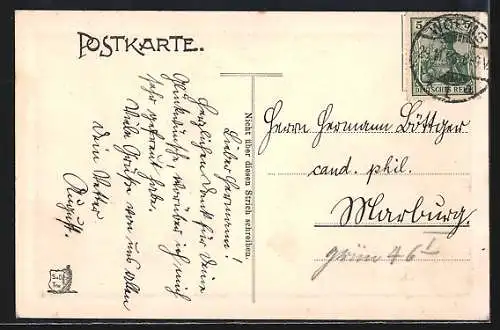 POSTKARTE.
5
DEUTSCHES REICH
Lieber Hermann!
Herzlichen Dank für Deine
Glückwünsche, worüber ich mich
sehr gefreut habe.
Viele Grüße von uns Allen
Dein Vetter
August.
Nicht über diesen Strich schreiben!
Herrn Hermann Böttger
cand. phil.
Marburg.
grün 46 I